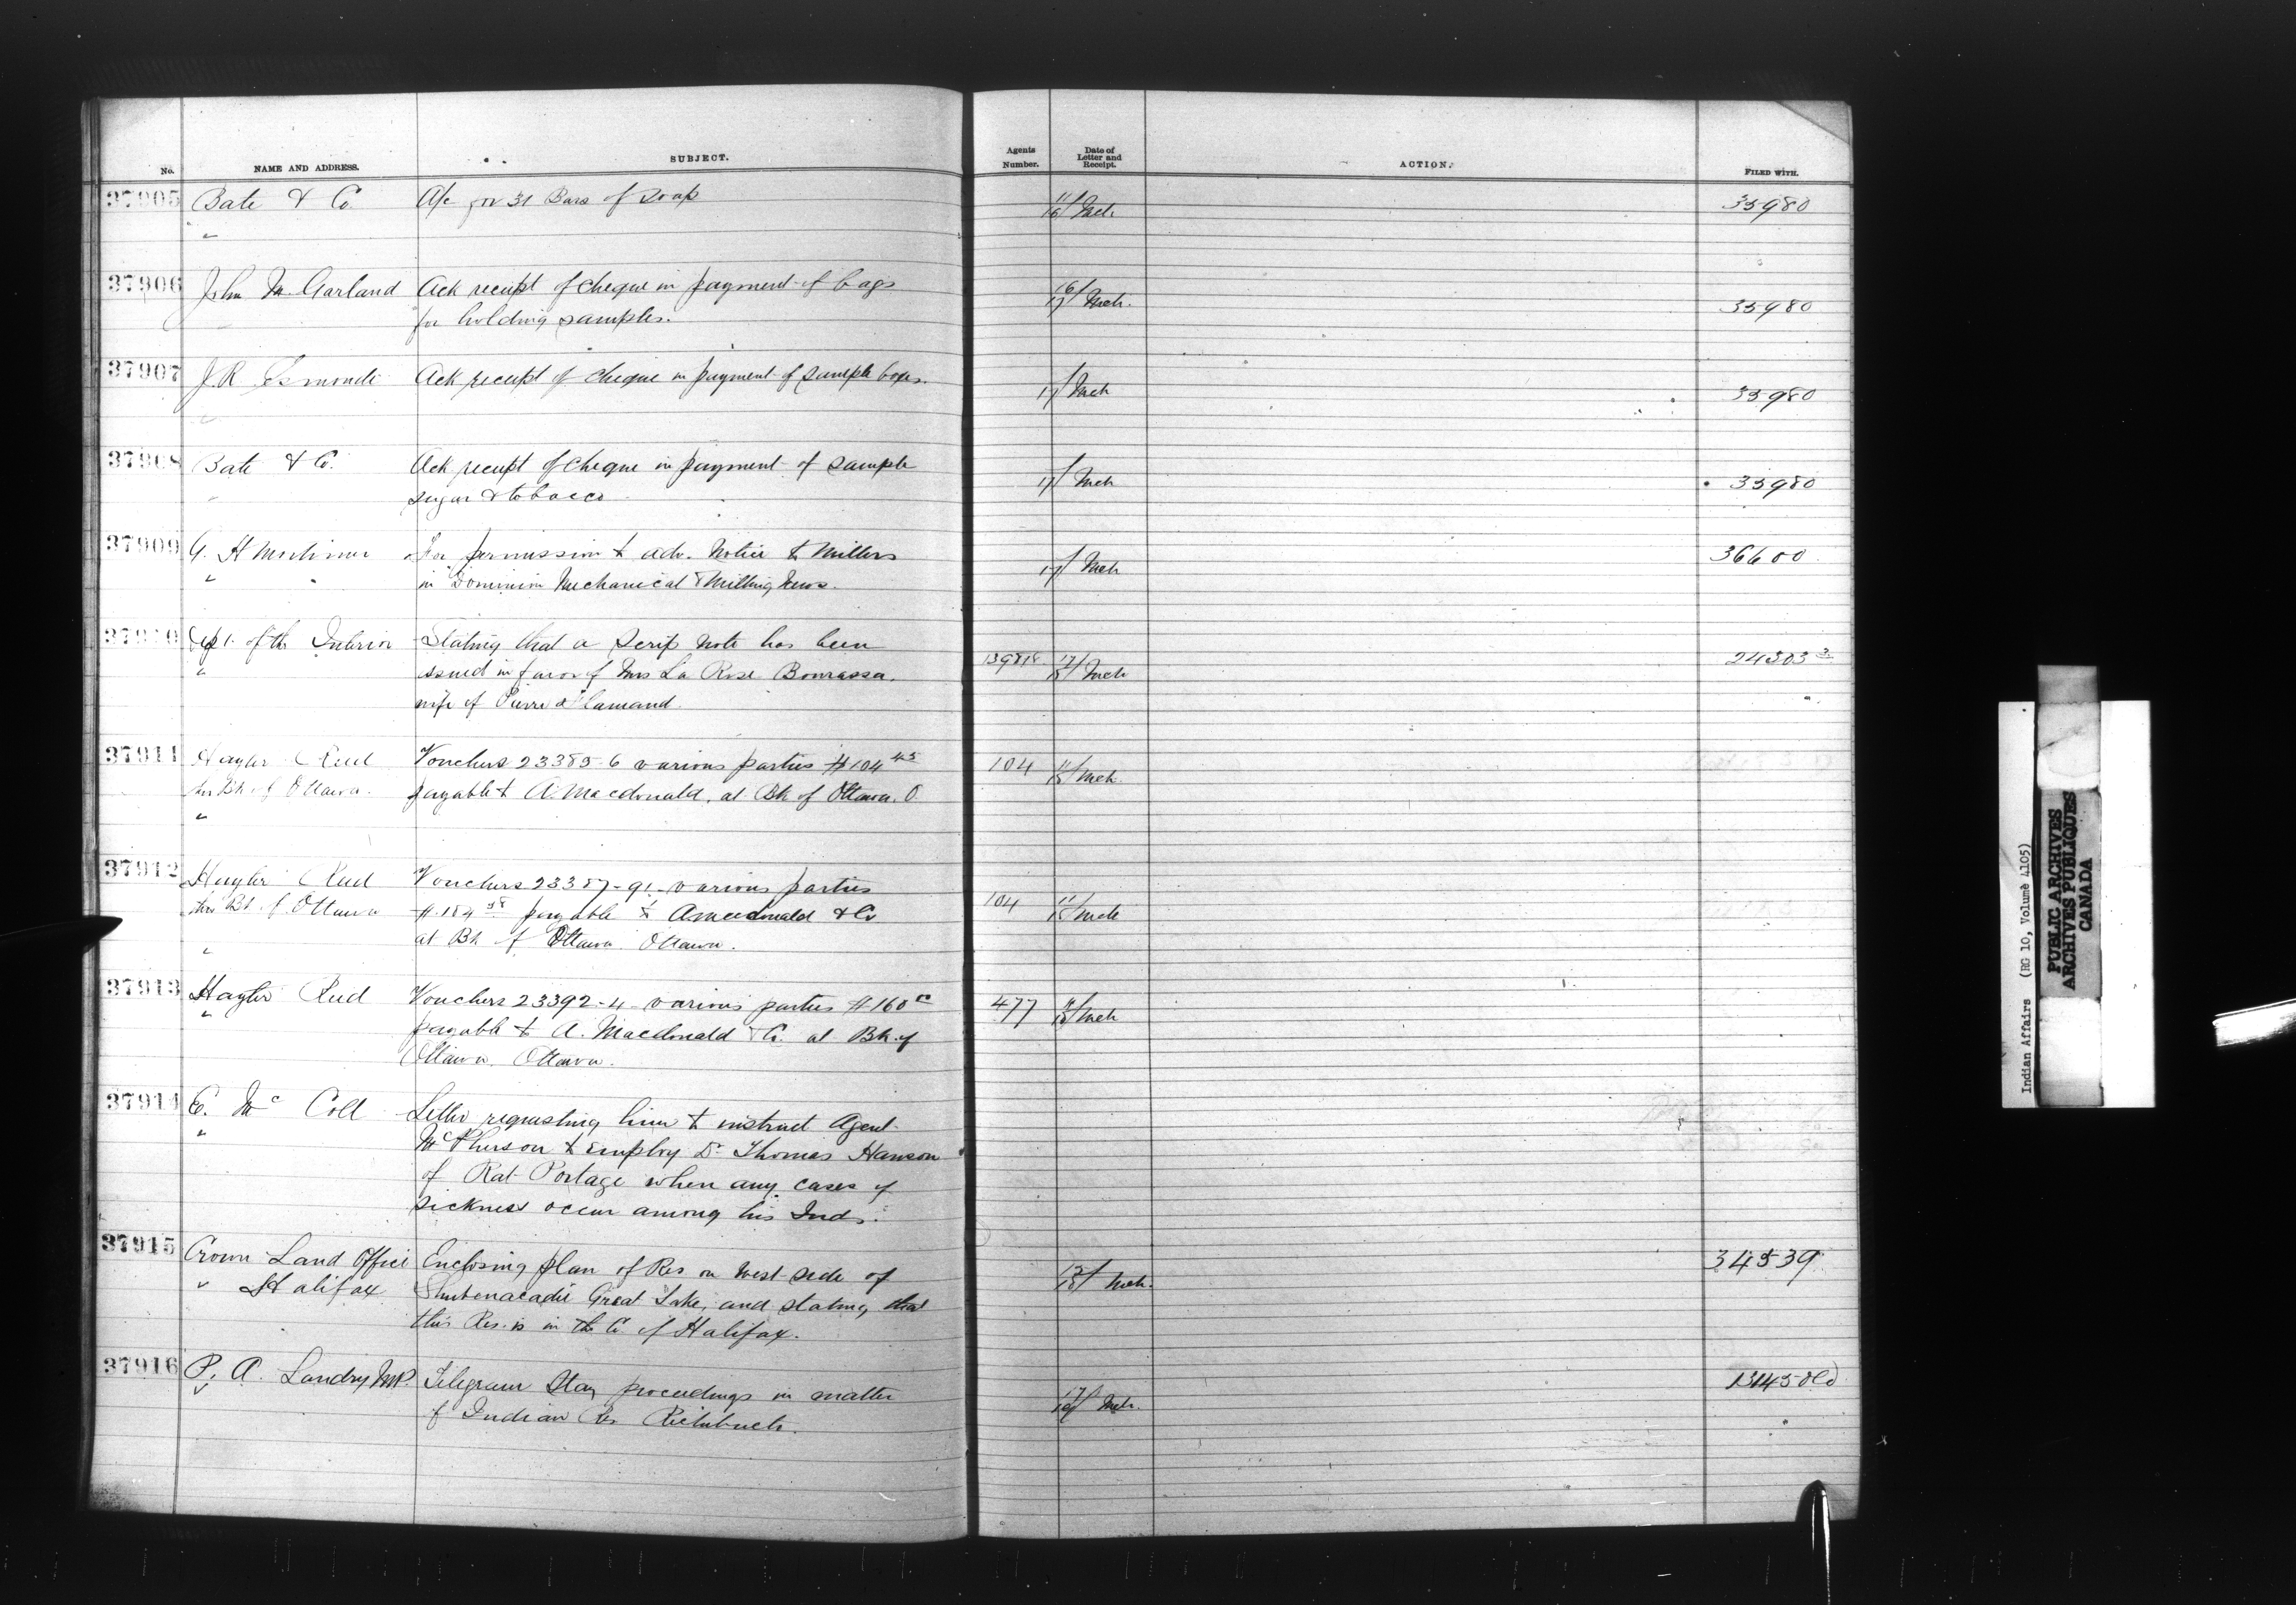 No. NAME AND ADDRESS. SUBJECT. Agents Number. Date of Letter and Receipt. ACTION. FILED WITH.
37905 Bate & Co. A/c for 31 Bars of Soap 11/16 Mch 33980
"
37906 John M. Garland Ack receipt of cheque in payment of bags 16/17 Mch. 33980
for holding samples.
37907 J.R. Esmonde Ack receipt of cheque in payment of sample boxes. 17/ Mch 33980
37908 Bate & Co. Ack receipt of cheque in payment of sample 17/ Mch 33980
sugar & tobacco
37909 G. H Mortimer For permission to adv. Notice to Millers 17/ Mch 36600
" in Dominion Mechanical & Milling News.
37910 Dept. of the Interior Stating that a Scrip Note has been 139818 17/18 Mch 24303 3
" issued in favor of Mrs La Rose Bourassa.
wife of Pierre Flamand.
37911 Hayter Reed Vouchers 23385-6 various parties $104 45 104 11/18 Mch.
thro Bk of Ottawa. payable to A. Macdonald, at Bk of Ottawa. O.
"
37912 Hayter Reed Vouchers 23387-91- various parties
thro Bk of Ottawa $184 98 payable to A Macdonald & Co 104 11/18 Mch
" at Bk of Ottawa. Ottawa.
37913 Hayter Reed Vouchers 23392-4 various parties $160 477 11/18 Mch
" payable to A. Macdonald & Co. at Bk of
Ottawa. Ottawa.
37914 E. Mc Coll Letter requesting him to instruct Agent
" McPherson to employ Dr Thomas Hanson
of Rat Portage when any cases of
sickness occur among his Inds.
37915 Crown Land Office Enclosing plan of Res on West side of 34539
" Halifax Shubenacadie Great Lake, and stating that 13/18 Mch.
this Res. is in the Co of Halifax.
37916 P. A. Landry M.P. Telegram Stay proceedings in matter 13145 Old
" of Indian Res Richibucto. 17/18 Mch.
Indian Affairs (RG 10, Volume 4105)
PUBLIC ARCHIVES
ARCHIVES PUBLIQUES
CANADA